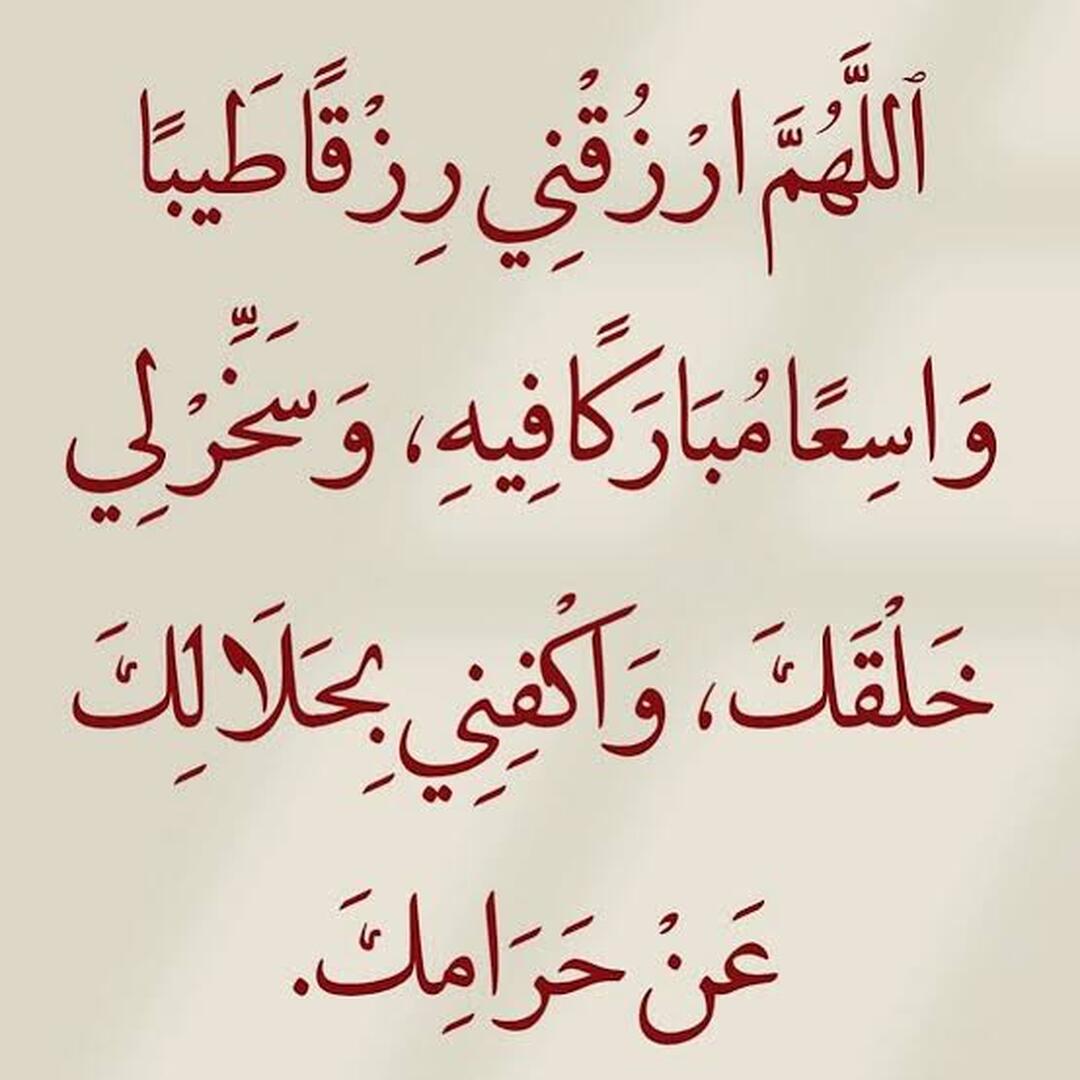 ٱللَّهُمَّ ارْزُقْنِي رِزْقًا طَيبًا
وَاسِعًا مُبَارَكًا فِيهِ، وَسَخِّرْ لِي
خَلْقَكَ، وَاكْفِنِي بِحَلَالِكَ
عَنْ حَرَامِكَ.